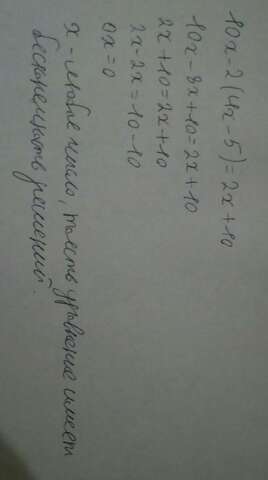 10x-2(4x-5)=2x+10
10x-8x+10=2x+10
2x+10=2x+10
2x-2x=10-10
0x=0
x-любое число, то есть уравнение имеет
бесконечность решений.